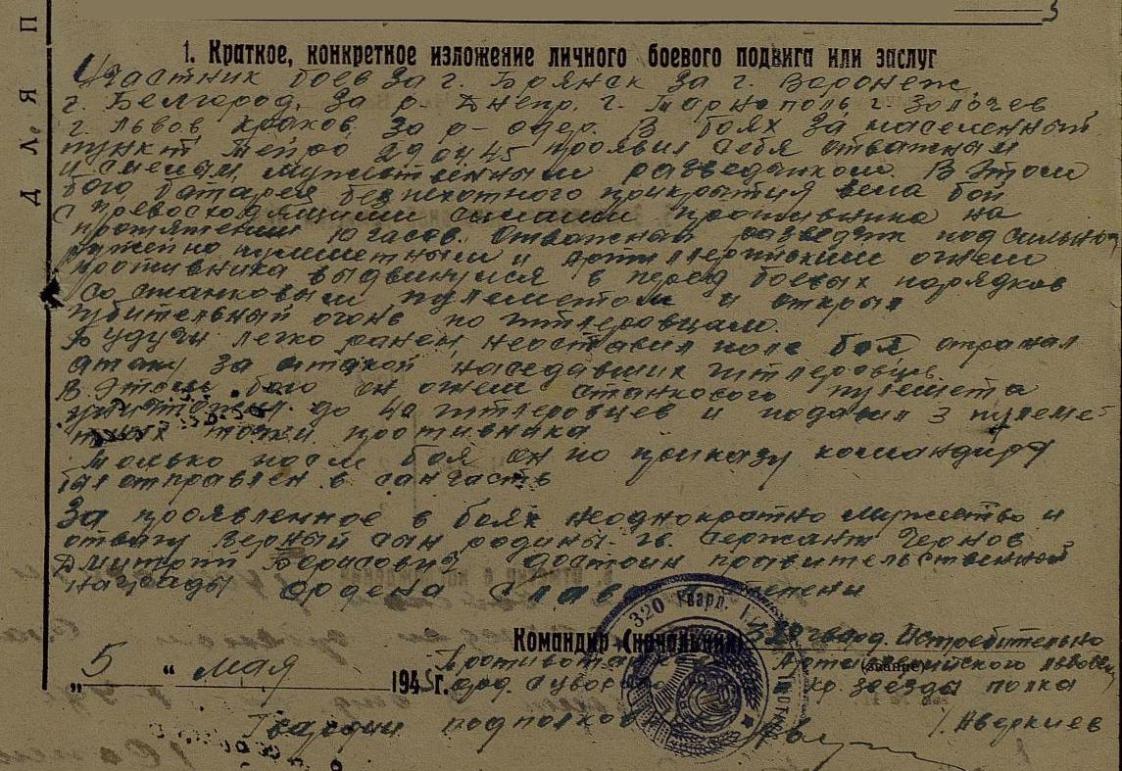 3
ДЛЯ П
1. Краткое, конкретное изложение личного боевого подвига или заслуг
Участник боев за г. Брянск за г. Воронеж,
г. Белгород, за р. Днепр, г. г. Золочев
г. Львов, Краков, за р- одер. В боях за населенный
пункт 29.04.45 проявил себя отважным
и смелым, мужественным разведчиком. В этом
бою батарея без пехотного прикрытия вела бой
с превосходящими силами противника на
протяжении 10 часов. Отважный разведчик под сильным
ружейно пулеметным и артиллерийским огнем
противника выдвинулся в перед боевых порядков
со станковым пулеметом и открыл
губительный огонь по гитлеровцам.
Будучи легко ранен, неоставил поле боя отражал
атаку за атакой наседавших гитлеровцев.
В этом бою он огнем станкового пулемета
уничтожил до 40 гитлеровцев и подавил 3 пулеме-
тных точки противника
Только после боя он по приказу командира
был отправлен в санчасть
За проявленное в боях неоднократно мужество и
отвагу верный сын родины- гв. Сержант Чернов
Дмитрий Борисович достоин правительственной
награды Ордена Слава степени
320 Гвард.
Командир (начальник) 320 гвард. Истребительно
Противотанк Артиллерийского Львовск
„5" мая 1945 г. орд. Суворова кр. звезда полка
(звание)
Гвардии подполков /. Аверкиев